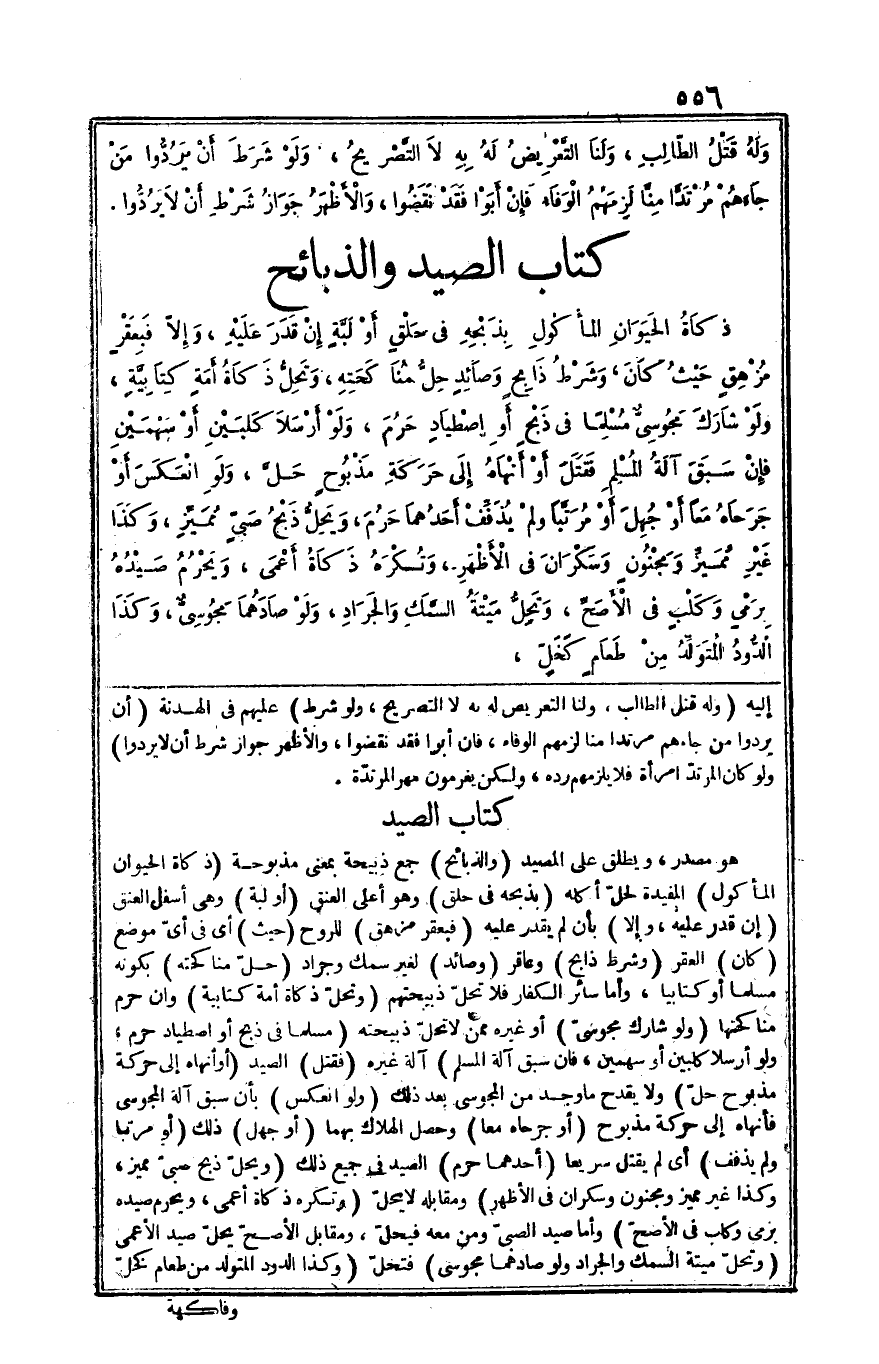 ٥٥٦
وَلَهُ قَتْلُ الطَّالِبِ ، وَلَنَا التَّعْرِيضُ لَهُ بِهِ لاَ التَّصْرِيحُ ، وَلَوْ شَرَطَ أَنْ يَرُدُّوا مَنْ
جَاءَهُمْ مُرْتَدًّا مِنَّا لَزِمَهُمُ الْوَفَاءُ فَإِنْ أَبَوْا فَقَدْ نَقَضُوا ، وَالْأَظْهَرُ جَوَازُ شَرْطِ أَنْ لاَيَرُدُّوا .
كتاب الصيد والذبائح
ذَكَاةُ الحَيَوَانِ المَأْكُولِ بِذَبْحِهِ فى حَلْقٍ أَوْ لَبَّةٍ إِنْ قَدَرَ عَلَيْهِ ، وَإِلاَّ فَبِعَقْرٍ
مُزْهِقٍ حَيْثُ كَانَ ، وَشَرْطُ ذَابِحٍ وَصَائِدٍ حِلُّ مُنَاكَحَتِهِ ، وَتَحِلُّ ذَكَاةُ أَمَةٍ كِتَابِيَّةٍ ،
وَلَوْ شَارَكَ مَجُوسِىٌّ مُسْلِمًا فى ذَبْحٍ أَوِ اصْطِيَادٍ حَرُمَ ، وَلَوْ أَرْسَلاَ كَلْبَيْنِ أَوْ سَهْمَيْنِ
فَإِنْ سَبَقَ آلَةُ المُسْلِمِ فَقَتَلَ أَوْ أَنْهَاهُ إِلَى حَرَكَةِ مَذْبُوحٍ حَلَّ ، وَلَوِ انْعَكَسَ أَوْ
جَرَحَاهُ مَعاً أَوْ جُهِلَ أَوْ مُرَتَّبًا وَلَمْ يُذَفِّفْ أَحَدُهُمَا حَرُمَ ، وَيَحِلُّ ذَبْحُ صَبِىٍّ مُمَيِّزٍ ، وَكَذَا
غَيْرِ مُمَيِّزٍ وَمَجْنُونٍ وَسَكْرَانَ فى الْأَظْهَرِ ، وَتُكْرَهُ ذَكَاةُ أَعْمَى ، وَيَحْرُمُ صَيْدُهُ
بِرَمْيٍ وَكَلْبٍ فى الْأَصَحِّ ، وَتَحِلُّ مَيْتَةُ السَّمَكِ وَالجَرَادِ ، وَلَوْ صَادَهُمَا مَجُوسِىٌّ ، وَكَذَا
الدُّودُ الْمُتَوَلِّدُ مِنْ طَعَامٍ كَخَلٍّ ،
إليه ( وله قتل الطالب ، ولنا التعريض له به لا التصريح ، ولو شرط ) عليهم فى الهدنة ( أن
يردوا من جاءهم مرتدا منا لزمهم الوفاء ، فان أبوا فقد نقضوا ، والأظهر جواز شرط أن لايردوا )
ولو كان المرتدّ امرأة فلا يلزمهم رده ، ولكن يغرمون مهر المرتدّة .
كتاب الصيد
هو مصدر ، ويطلق على المصيد ( والذبائح ) جمع ذبيحة بمعنى مذبوحة ( ذكاة الحيوان
المأكول ) المفيدة لحلّ أكله ( بذبحه فى حلق ) وهو أعلى العنق ( أو لبة ) وهى أسفل العنق
( إن قدر عليه ، وإلا ) بأن لم يقدر عليه ( فبعقر مزهق ) للروح ( حيث ) أى فى أىّ موضع
( كان ) العقر ( وشرط ذابح ) وعاقر ( وصائد ) لغير سمك وجراد ( حلّ مناكحته ) بكونه
مسلما أو كتابيا ، وأما سائر الكفار فلا تحلّ ذبيحتهم ( وتحلّ ذكاة أمة كتابية ) وان حرم
مناكحتها ( ولو شارك مجوسىّ ) أو غيره ممن لاتحلّ ذبيحته ( مسلما فى ذبح أو اصطياد حرم ،
ولو أرسلا كلبين أو سهمين ، فان سبق آلة المسلم ) آلة غيره ( فقتل ) الصيد ( أوأنهاه إلى حركة
مذبوح حلّ ) ولا يقدح ماوجد من المجوسى بعد ذلك ( ولو انعكس ) بأن سبق آلة المجوسى
فأنهاه إلى حركة مذبوح ( أو جرحاه معا ) وحصل الهلاك بهما ( أو جهل ) ذلك ( أو مرتبا
ولم يذفف ) أى لم يقتل سريعا ( أحدهما حرم ) الصيد فى جميع ذلك ( ويحلّ ذبح صبىّ مميز ،
وكذا غير مميز ومجنون وسكران فى الأظهر ) ومقابله لايحلّ ( وتكره ذكاة أعمى ، ويحرم صيده
برمى وكلب فى الأصحّ ) وأما صيد الصبىّ ومن معه فيحلّ ، ومقابل الأصحّ يحلّ صيد الأعمى
( وتحلّ ميتة السمك والجراد ولو صادهما مجوسى ) فتحلّ ( وكذا الدود المتولد من طعام كخلّ
وفاكهة